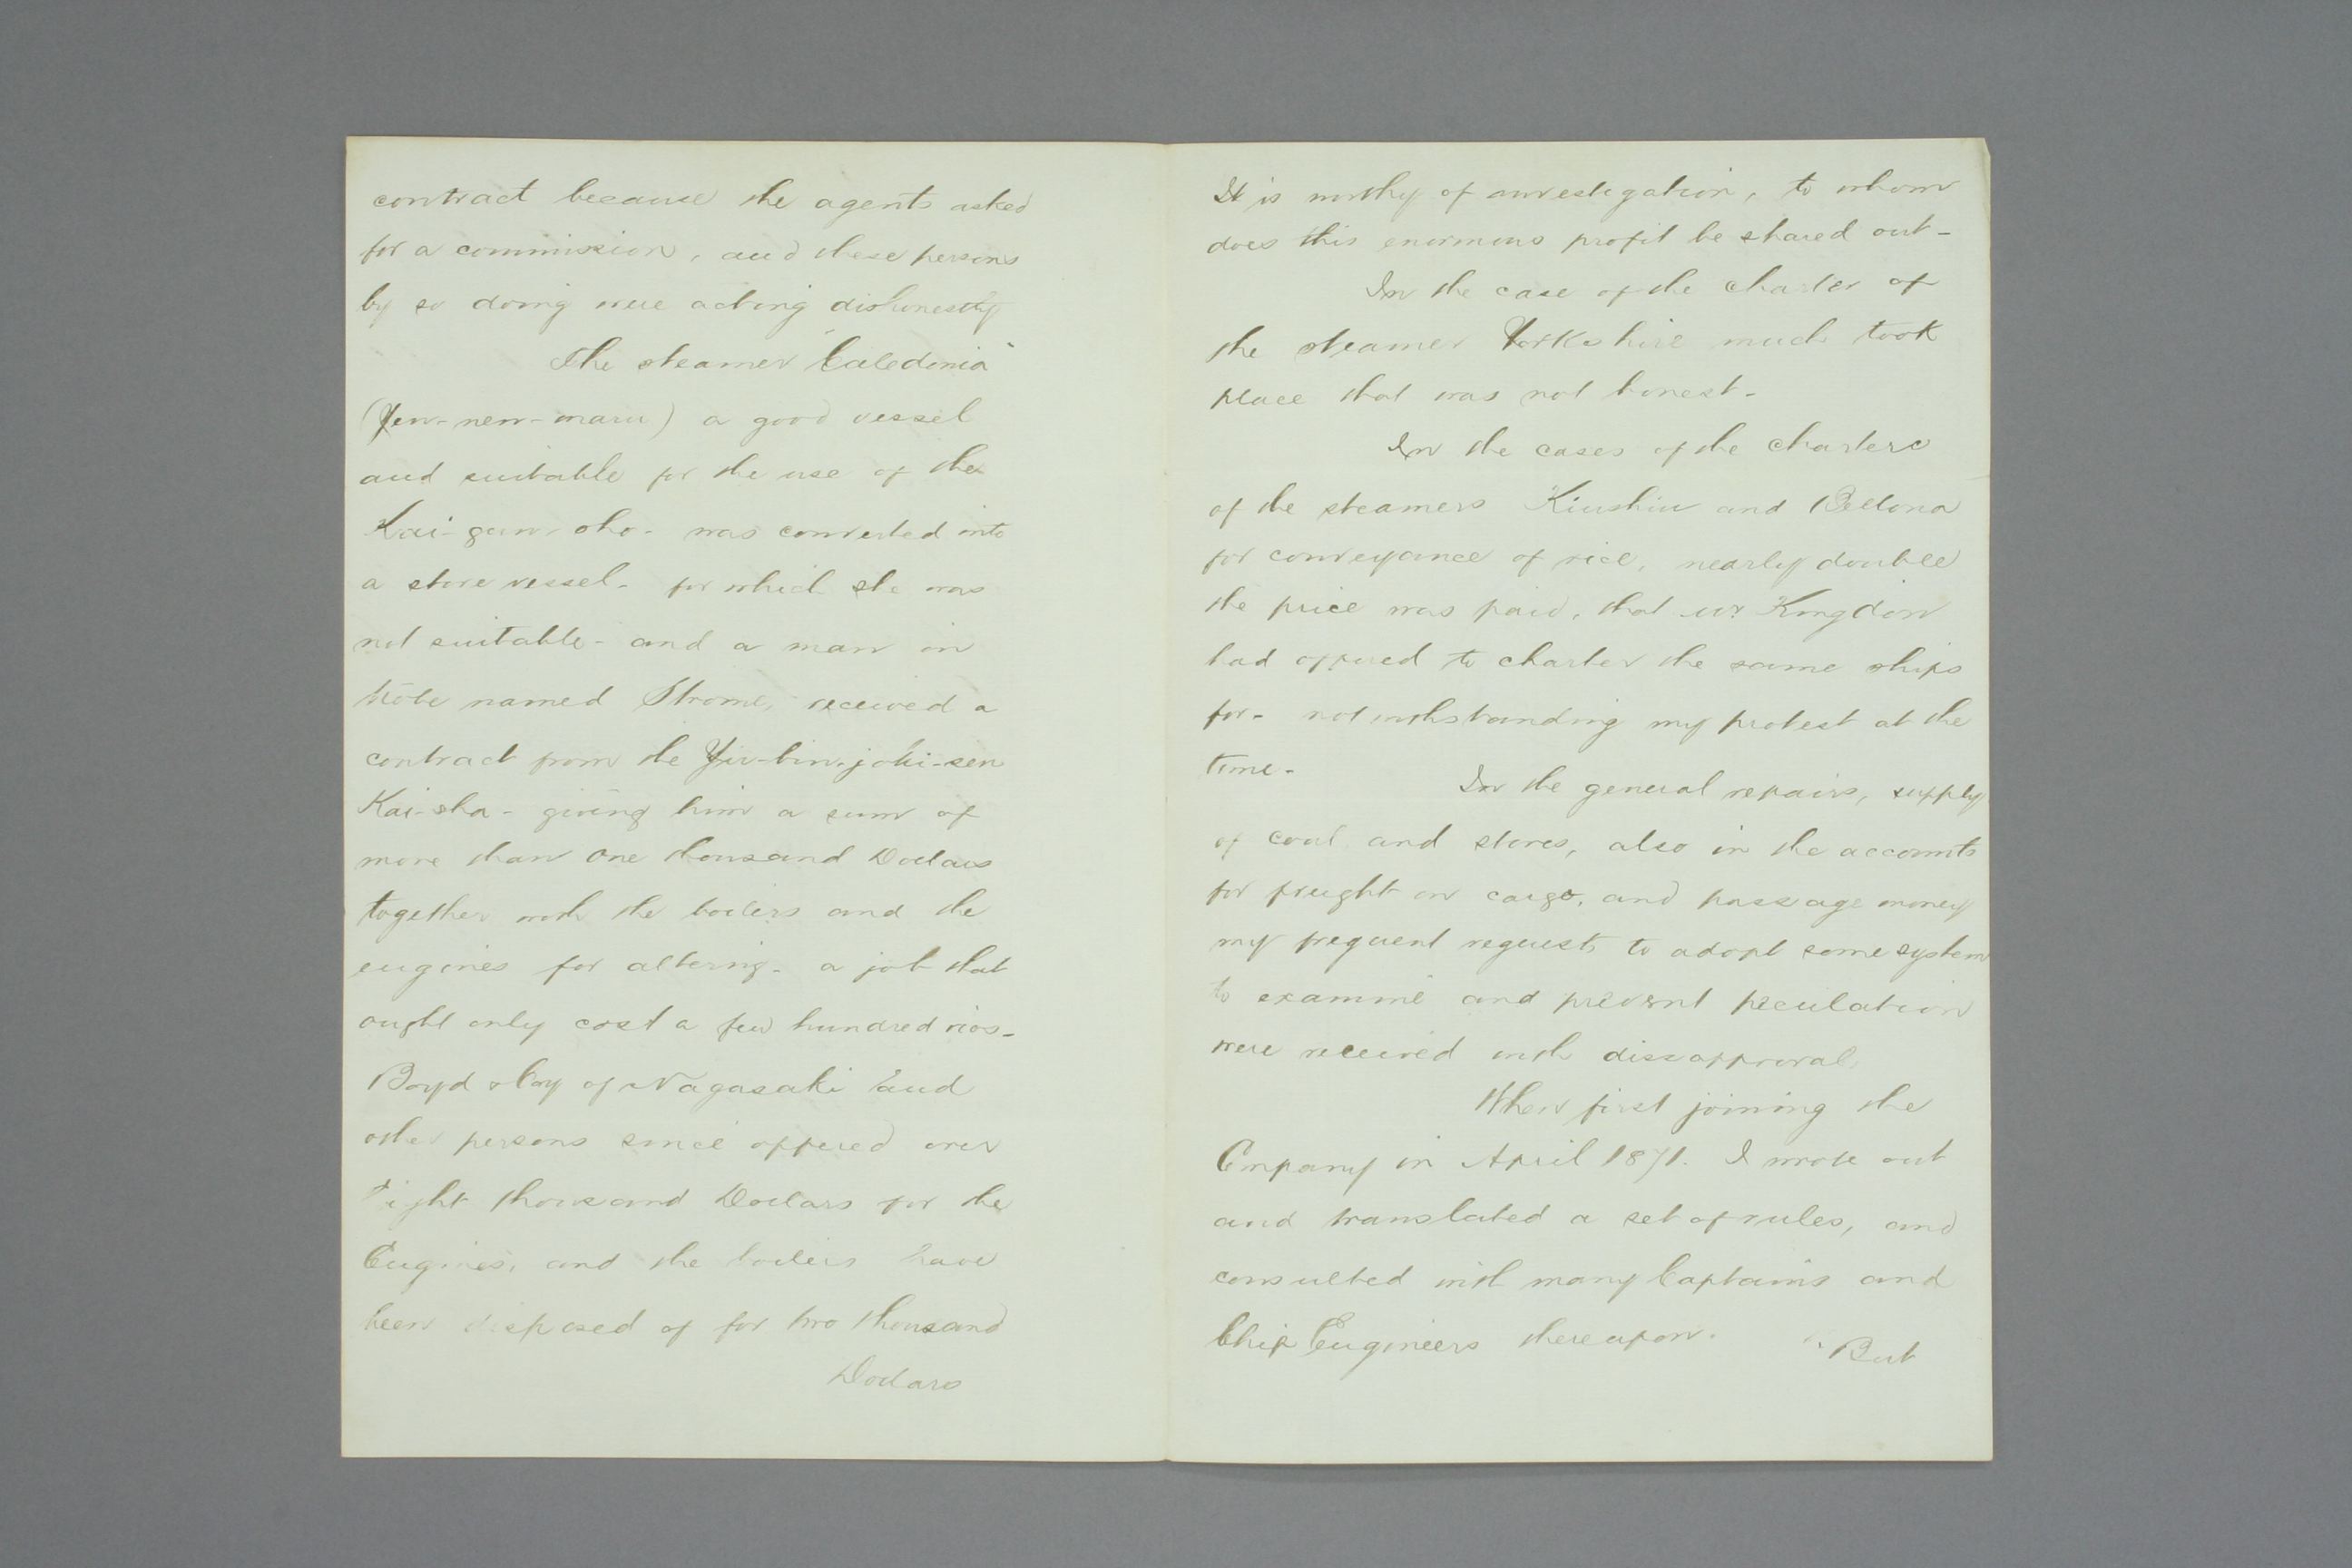 contract because the agents asked
for a commission, and these persons
by so doing were acting dishonestly
The steamer "Caledonia"
(Yen-nen-maru) a good vessel
and suitable for the use of the
Kai-gun-sho - was converted into
a store vessel - for which she was
not suitable - and a man in
Kobe named Strome, received a
contract from the Yiu-bin-joki-sen
Kai-sha - giving him a sum of
more than one thousand Dollars
together with the boilers and the
engines for altering - a job that
ought only cost a few hundred rios -
Boyd & Coy of Nagasaki and
other persons since offered over
eight thousand Dollars for the
Engines, and the boilers have
been disposed of for two thousand
Dollars
It is worthy of investigation, to whom
does this enormous profit be shared out -
In the case of the charter of
the steamer Yorkshire much took
place that was not honest -
In the cases of the charters
of the steamers Kiushiu and Bellona
for conveyance of rice, nearly double
the price was paid, that Mr Kingdon
had offered to charter the same ships
for - notwithstanding my protest at the
time -
In the general repairs, supply
of coal and stores, also in the accounts
for freight on cargo, and passage money
my frequent requests to adopt some system
to examine and prevent peculation
were received with dissapproval,
When first joining the
Company in April 1871. I wrote out
and translated a set of rules, and
consulted with many Captains and
Chief Engineers thereupon.
But